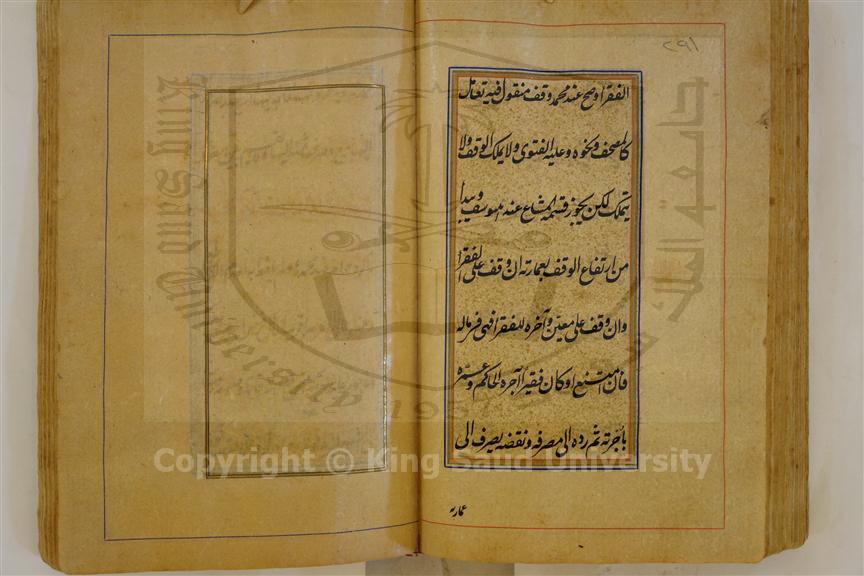 ٢٩١
الفقراء وصح عند محمد وقف منقول فيه تعامل
كالمصحف ونحوه وعليه الفتوى ولا يملك الوقف ولا
يتملك لكن يجوز قسمة المشاع عند ابى يوسف ويبدأ
من ارتفاع الوقف بعمارته ان وقف على الفقرا
وان وقف على معين وآخره للفقرا فهى فى ماله
فان امتنع او كان فقيرا آجره الحاكم وعمره
بأجرته ثم رده الى مصرفه ونقضه يصرف الى
عمارته
جامعة الملك سعود
King Saud University
1957
Copyright © King Saud University